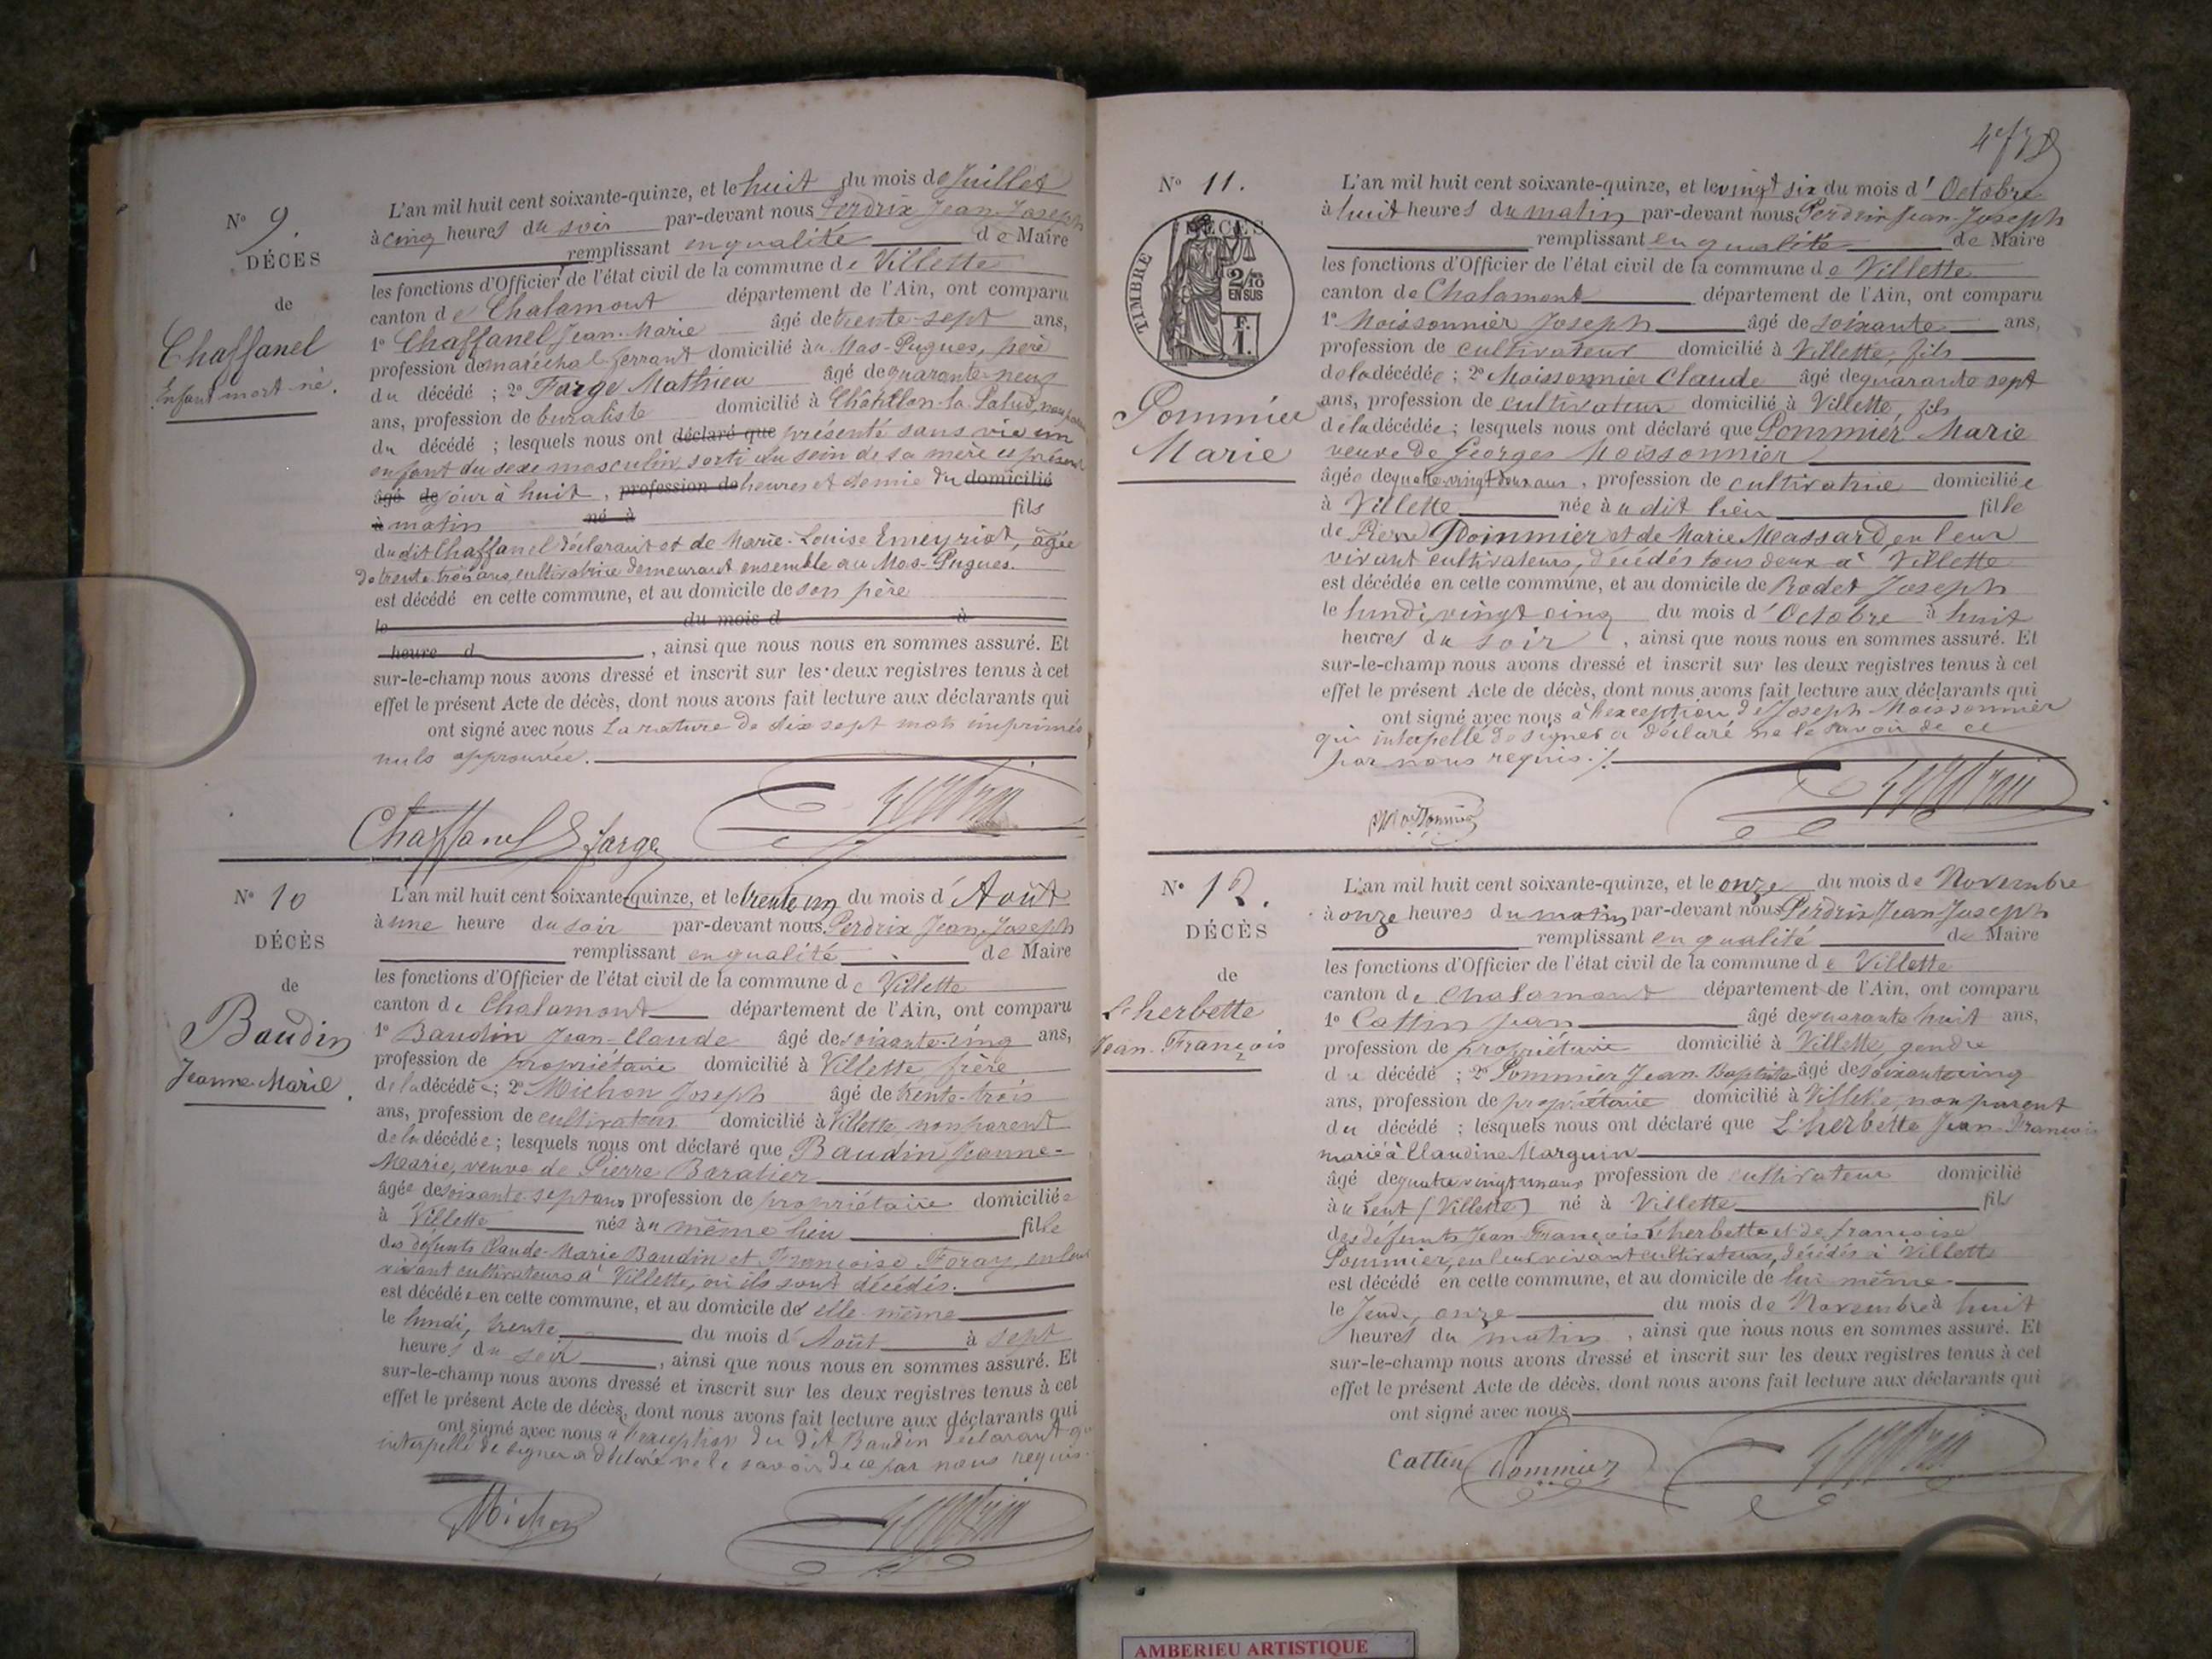 N° 9.
DÉCÈS
de
Chaffanel
Enfant mort-né.
L'an mil huit cent soixante-quinze, et le huit du mois de Juillet
à cinq heures du soir par-devant nous Perdrix Jean-Joseph
remplissant en qualité de Maire
les fonctions d'Officier de l'état civil de la commune de Villette
canton de Chalamont département de l'Ain, ont comparu
1° Chaffanel Jean-Marie âgé de trente-sept ans,
profession de maréchal ferrant domicilié au Mas-Pugues, père
du décédé ; 2° Farge Mathieu âgé de quarante-neuf
ans, profession de buraliste domicilié à Châtillon-la-Palud, non parent
du décédé ; lesquels nous ont déclaré que présenté sans vie un
enfant du sexe masculin, sorti du sein de sa mère ce présent
âgé de jour à huit , profession de heures et demie du domicilié
à matin né à fils
du dit Chaffanel déclarant et de Marie-Louise Emeyriat, âgée
de trente trois ans, cultivatrice demeurant ensemble au Mas-Pugues.
est décédé en cette commune, et au domicile de son père
le du mois d à
heure d , ainsi que nous nous en sommes assuré. Et
sur-le-champ nous avons dressé et inscrit sur les deux registres tenus à cet
effet le présent Acte de décès, dont nous avons fait lecture aux déclarants qui
ont signé avec nous La rature de dix sept mots imprimés
nuls approuvée.
Chaffanel Farge
N° 10
DÉCÈS
de
Baudin
Jeanne Marie.
L'an mil huit cent soixante-quinze, et le trente un du mois d'Août
à une heure du soir par-devant nous Perdrix Jean-Joseph
remplissant en qualité de Maire
les fonctions d'Officier de l'état civil de la commune de Villette
canton de Chalamont département de l'Ain, ont comparu
1° Baudin Jean-Claude âgé de soixante-cinq ans,
profession de propriétaire domicilié à Villette, frère
de la décédée ; 2° Michon Joseph âgé de trente-trois
ans, profession de cultivateur domicilié à Villette, non parent
de la décédée ; lesquels nous ont déclaré que Baudin Jeanne-
Marie, veuve de Pierre Baratier
âgée de soixante-sept ans profession de propriétaire domiciliée
à Villette née au même lieu fille
des défunts Claude-Marie Baudin et Françoise Foray, en leur
vivant cultivateurs à Villette, où ils sont décédés.
est décédée en cette commune, et au domicile de elle même
le lundi, trente du mois d'Août à sept
heures du soir , ainsi que nous nous en sommes assuré. Et
sur-le-champ nous avons dressé et inscrit sur les deux registres tenus à cet
effet le présent Acte de décès, dont nous avons fait lecture aux déclarants qui
ont signé avec nous à l'exception du dit Baudin déclarant qui
interpellé de signer a déclaré ne le savoir de ce par nous requis.
Michon
N° 11.
DÉCÈS
TIMBRE
2/10
EN SUS
F.
1.
Pommier
Marie
L'an mil huit cent soixante-quinze, et le vingt six du mois d'Octobre
à huit heures du matin par-devant nous Perdrix Jean-Joseph
remplissant en qualité de Maire
les fonctions d'Officier de l'état civil de la commune de Villette
canton de Chalamont département de l'Ain, ont comparu
1° Moissonnier Joseph âgé de soixante ans,
profession de cultivateur domicilié à Villette, fils
de la décédée ; 2° Moissonnier Claude âgé de quarante sept
ans, profession de cultivateur domicilié à Villette, fils
de la décédée ; lesquels nous ont déclaré que Pommier Marie
veuve de Georges Moissonnier
âgée de quatre-vingt deux ans , profession de cultivatrice domiciliée
à Villette née au dit lieu fille
de Pierre Pommier et de Marie Massard, en leur
vivant cultivateurs, décédés tous deux à Villette
est décédée en cette commune, et au domicile de Rodet Joseph
le lundi, vingt cinq du mois d'Octobre à huit
heures du soir , ainsi que nous nous en sommes assuré. Et
sur-le-champ nous avons dressé et inscrit sur les deux registres tenus à cet
effet le présent Acte de décès, dont nous avons fait lecture aux déclarants qui
ont signé avec nous à l'exception de Joseph Moissonnier
qui interpellé de signer a déclaré ne le savoir de ce
par nous requis ./.
N° 12.
DÉCÈS
de
L'herbette
Jean-François
L'an mil huit cent soixante-quinze, et le onze du mois de Novembre
à onze heures du matin par-devant nous Perdrix Jean Joseph
remplissant en qualité de Maire
les fonctions d'Officier de l'état civil de la commune de Villette
canton de Chalamont département de l'Ain, ont comparu
1° Cattin Jean âgé de quarante huit ans,
profession de propriétaire domicilié à Villette, gendre
du décédé ; 2° Pommier Jean-Baptiste âgé de soixante cinq
ans, profession de propriétaire domicilié à Villette, non parent
du décédé ; lesquels nous ont déclaré que L'herbette Jean-François
marié à Claudine Marguin
âgé de quatre vingt un ans profession de cultivateur domicilié
au (Villette) né à Villette fils
des défunts Jean-François L'herbette et de françoise
Pommier, en leur vivant cultivateurs, décédés à Villette
est décédé en cette commune, et au domicile de lui même
le Jeudi, onze du mois de Novembre à huit
heures du matin , ainsi que nous nous en sommes assuré. Et
sur-le-champ nous avons dressé et inscrit sur les deux registres tenus à cet
effet le présent Acte de décès, dont nous avons fait lecture aux déclarants qui
ont signé avec nous
Cattin Pommier
AMBERIEU ARTISTIQUE